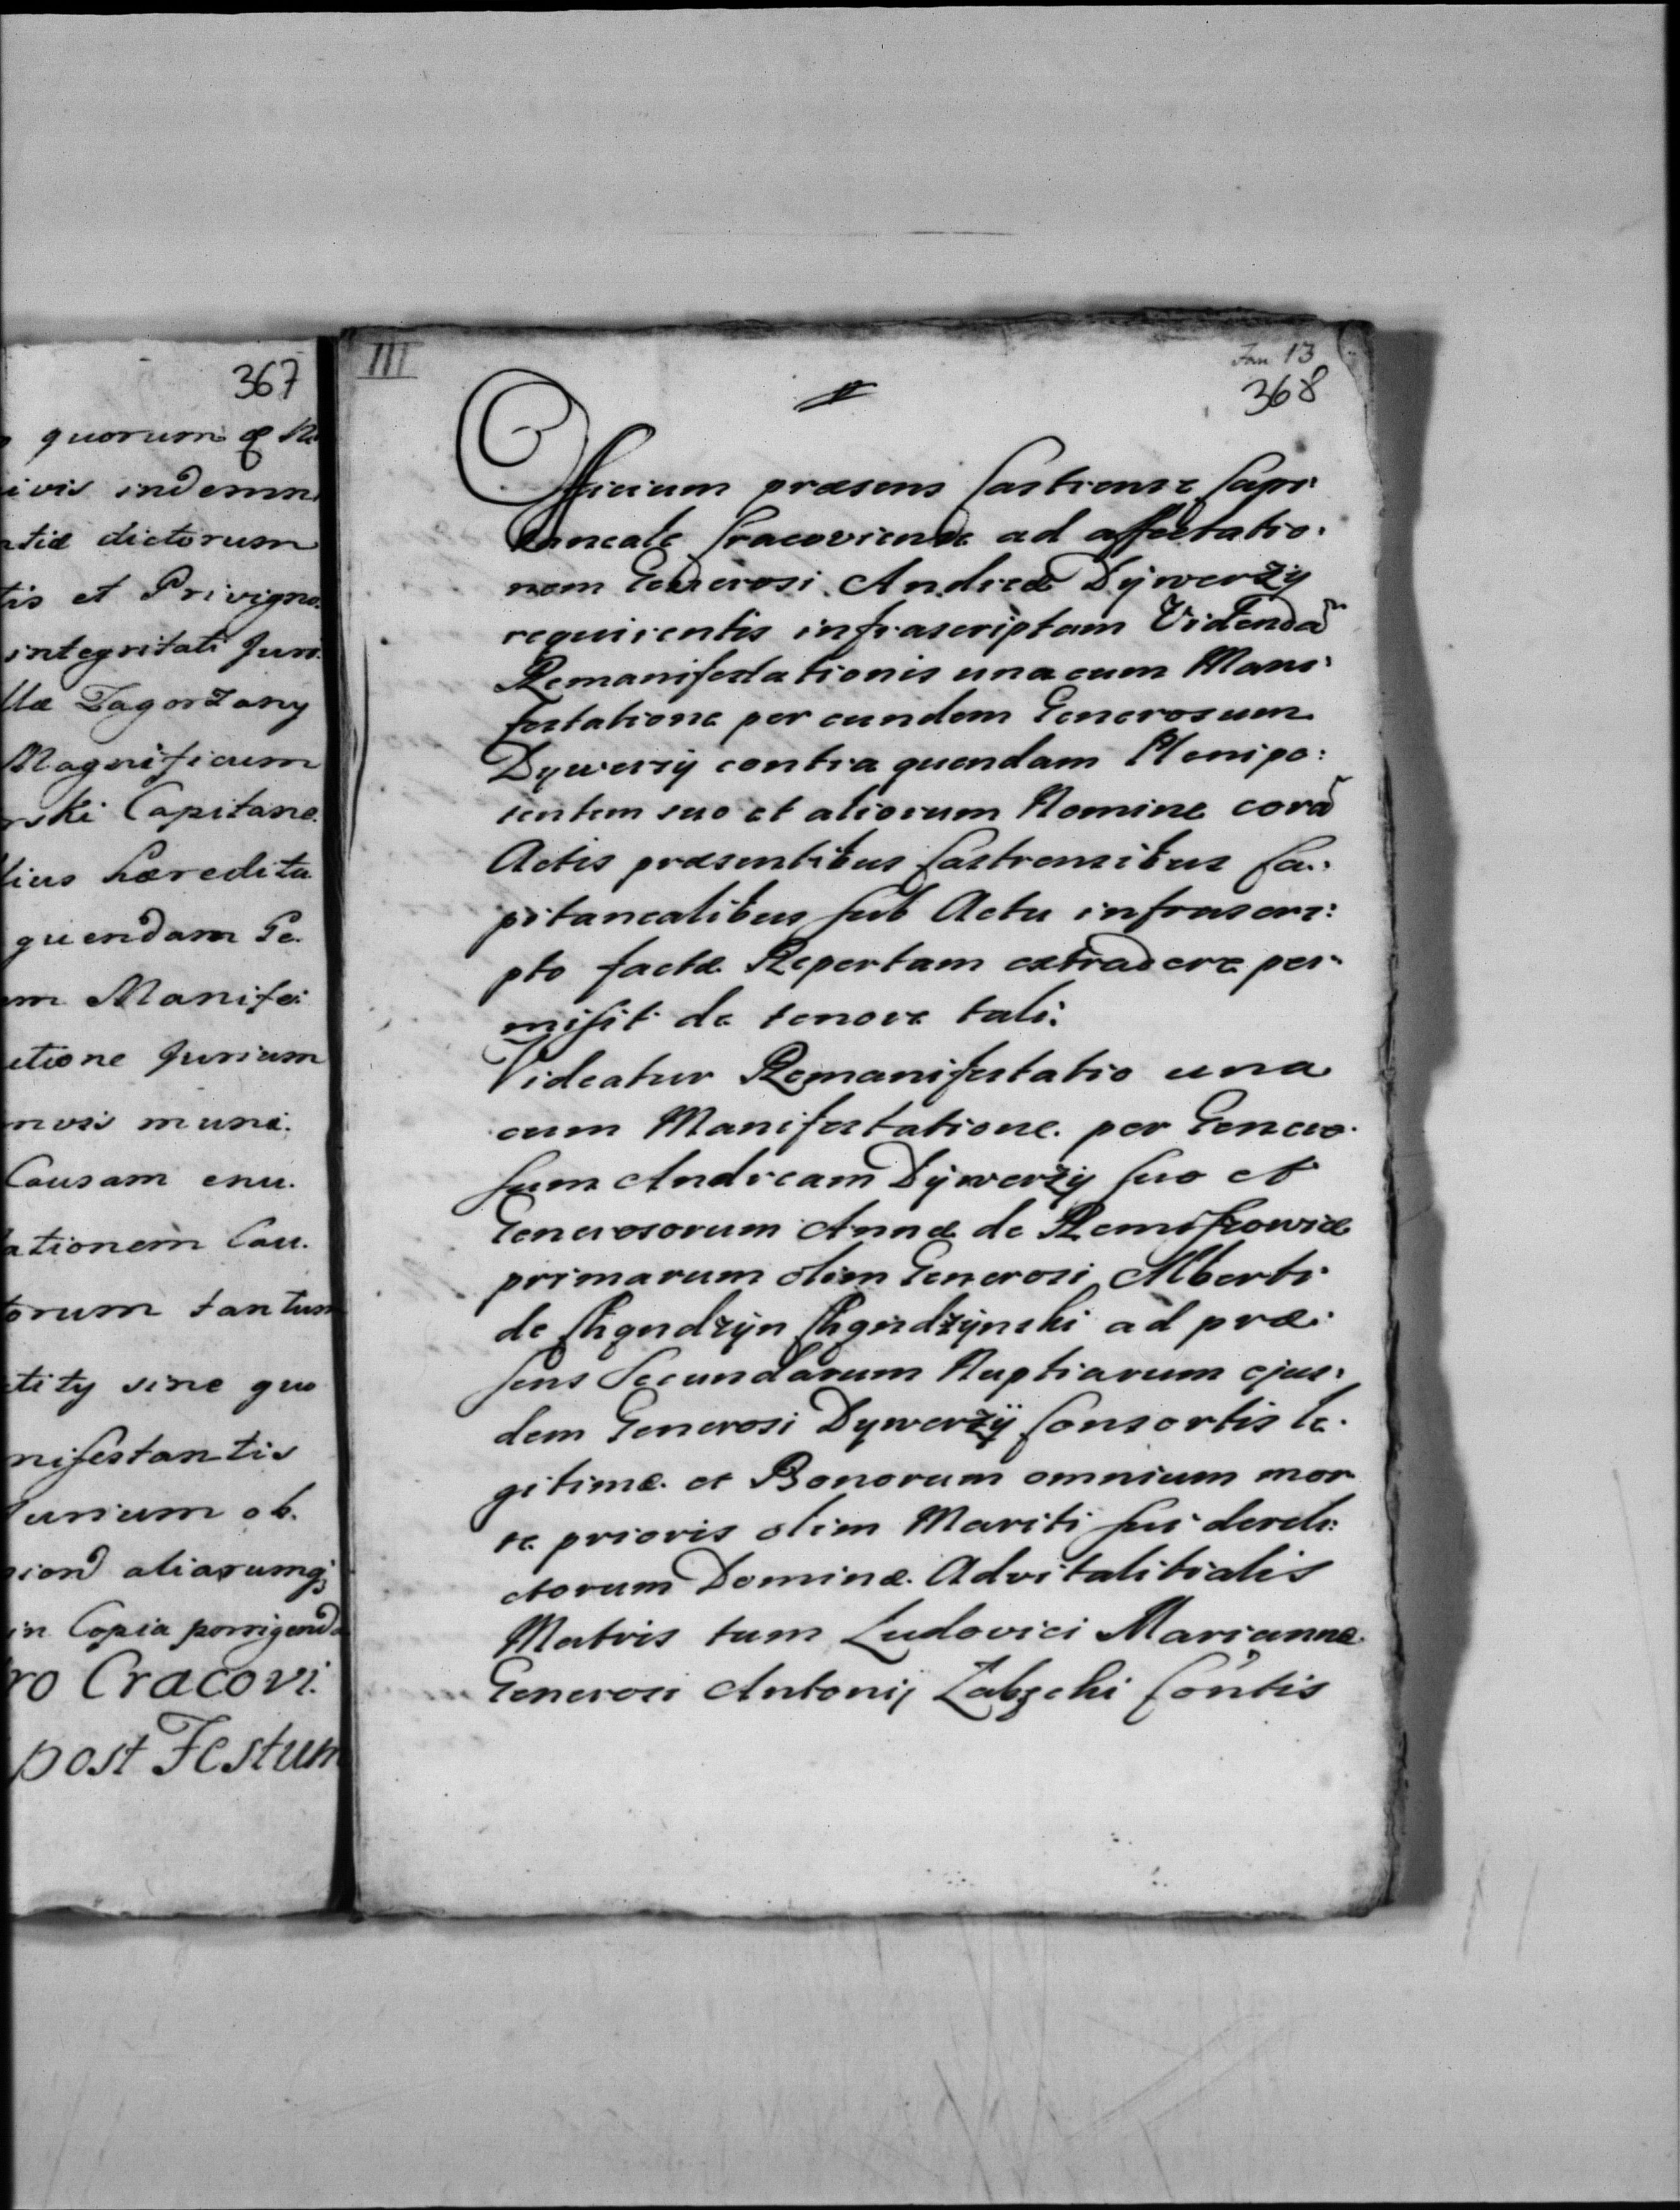 367
quorum
ivis indemn
ntiæ dictorum
tis et Privigno.
integritati Juri.
llæ Zagorzany
Magnificum
rski Capitane.
lius hæredita
quendam Ge.
m Manifes
tione Jurium
muni.
Causam enu.
ationem Cau.
orum tantum
tity sine quo
nifestantis
Jurium ob.
aliarumq;
in Copia porrigend
ro Cracovi.
post Festum
III
Jan 13
368
Officium præsens Castrense Capi:
taneale Cracoviense ad affectatio:
nem Generosi Andreæ Dywerży
requirentis infrascriptam Videndã
Remanifestationis una cum Mani:
festatione per eundem Generosum
Dywerży contra quendam Plenipo:
tentem suo et aliorum Nomine corã
Actis præsentibus Castrensibus Ca:
pitanealibus sub Actu infrascri:
pto factæ Repertam extradere per:
misit de tenore tali:
Videatur Remanifestatio una
cum Manifestatione per Genero:
sum Andream Dywerży suo et
Generosorum Annæ de
primarum olim Generosi Alberti
de ad præ:
sens Secundarum Nuptiarum ejus:
dem Generosi Dywerży Consortis le:
gitimæ et Bonorum omnium mor
te prioris olim Mariti sui dereli:
ctorum Dominæ Advitalitialis
Matris tum Ludovici Mariannæ
Generosi Antonij Ząbecki Contis